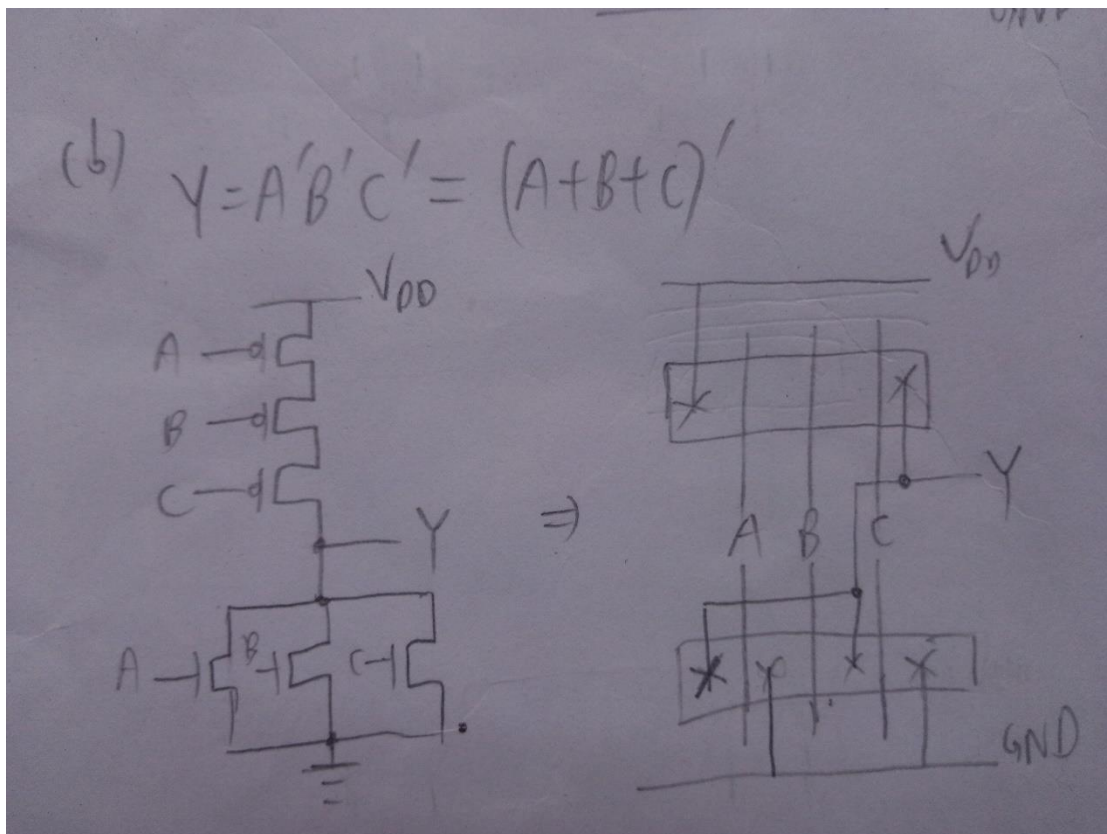 (b) Y = A'B'C' = (A+B+C)'
V_DD
A
B
C
Y
A
B
C
⇒
V_DD
Y
A B C
GND